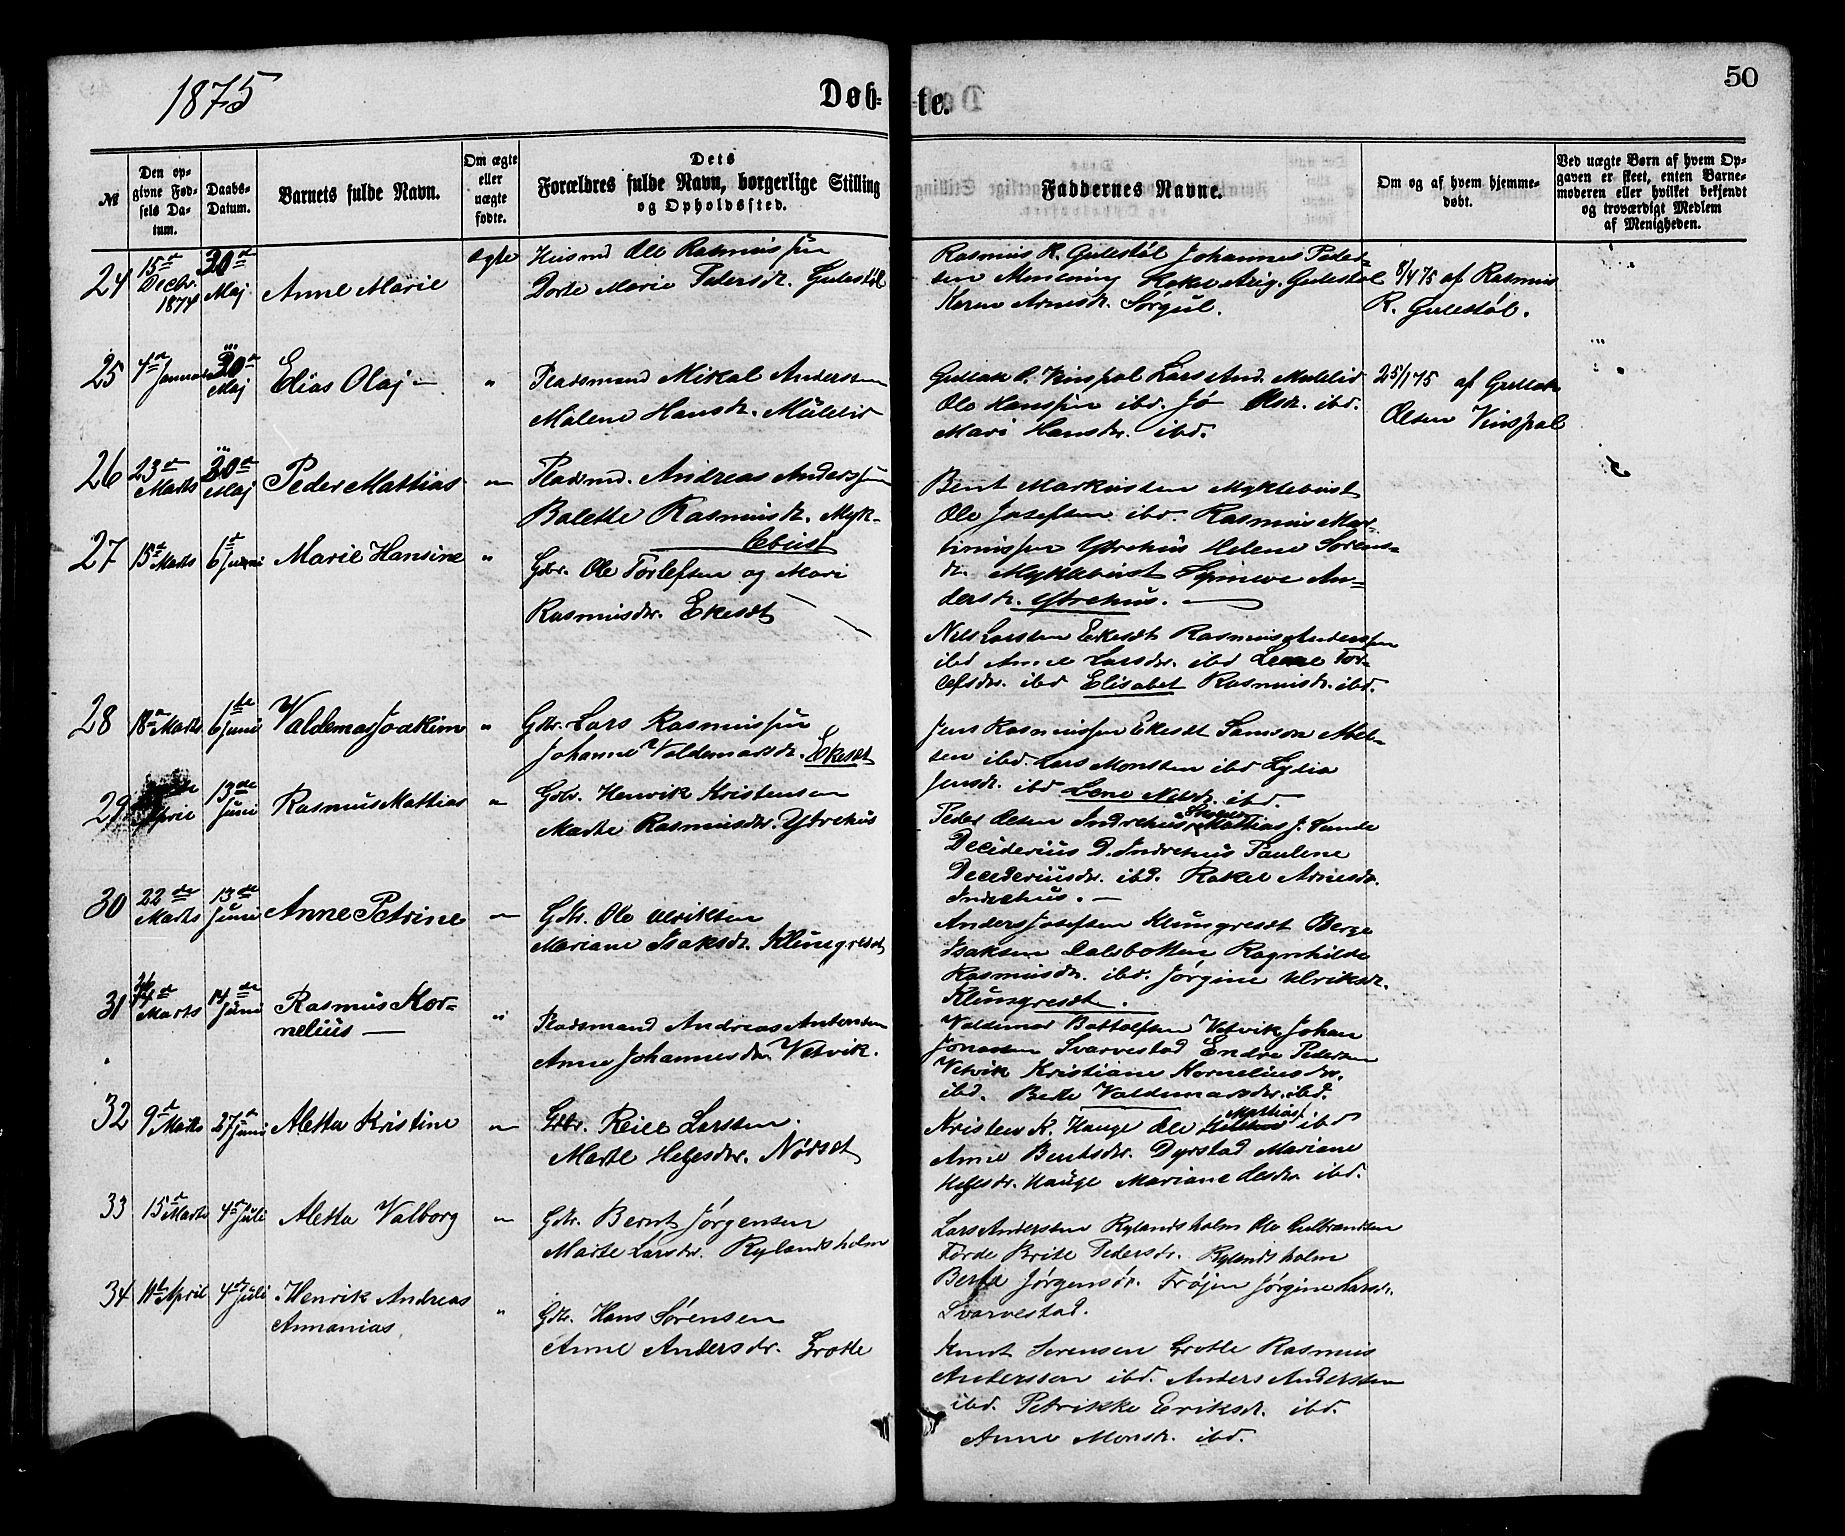 1875
Døb-
te.
50
№
Den op-
givne Fød-
sels Da-
tum.
Daabs-
Datum.
Barnets fulde Navn.
Om ægte
eller
uægte
fødte.
Dets
Forældres fulde Navn, borgerlige Stilling
og Opholdssted.
Faddernes Navne.
Om og af hvem hjemme-
døbt.
Ved uægte Børn af hvem Op-
gaven er skeet, enten Barne-
moderen eller hvilket bekjendt
og troværdigt Medlem
af Menigheden.
24 15de Decbr. 1874 30te Maj Anne Marie ægte
Husmd Ole Rasmussen
Dorte Marie Petersdr. Gulestøl
Rasmus R. Gulestøl Johannes Peder-
sen Gulestøl
Karen Arnesdr. Sørgul.
8/4 75 af Rasmus
R. Gulestøl.
25 4de Januar 30te Maj Elias Olaj – "
Pladsmand Mikal Andersen
Malene Hansdr. Mulelid
Gullak O. Vinspol Lars And. Mulelid
Ole Hanssen ibd. ibd.
Mari Hansdr. ibd.
25/1 75 af Gullak
Olsen Vinspol
26 23de Marts 30te Maj Peder Mattias "
Pladsmd. Andreas Anderssen
Balette Rasmusdr. Myk-
lebust
Bent Markussen Myklebust
Ole Josefsen ibd. Rasmus Mar-
tinussen Ytrehus Helene Sørens-
dr. Myklebust Synneve An-
dersdr. Ytrehus.
27 15de Marts 6te Juni Marie Hansine "
Gbr. Ole Torlefsen og Mari
Rasmusdr. Ekesdt
Nils Larsen Ekesdt Rasmus Anderssen
ibd Anne Larsdr. ibd Lene Tor-
lefsdr. ibd Elisabet Rasmusdr. ibd.
28 18de Marts 6te Juni Valdemar Joakim "
Gbr. Lars Rasmussen
Johanne Valdemarsdr. Ekesdt
Jens Rasmussen Ekesdt Samson Abel-
sen ibd. Lars Monssen ibd Lydia
Jensdr. ibd Lene Nilsdr. ibd.
29 April 13de Juni Rasmus Mattias "
Gbr. Henrik Kristensen
Marte Rasmusdr. Ytrehus
Peder Olsen Indrehus Mattias J. Sunde
Deciderius D. Indrehus Pauline
Decideriusdr. ibd. Rakel Arnesdr.
Indrehus. –
30 22de Marts 13de Juni Anne Petrine "
Gbr. Ole Ulriksen
Mariane Isaksdr. Klungresdt
Anders Josefsen Klungresdt Berge
Isaksen Dalsbotten Ragnhilde
Rasmusdr. ibd. Jørgine Ulriksdr.
Klungresdt.
31 Marts 14de Juni Rasmus Kor-
nelius – "
Pladsmand Andreas Antonsen
Anne Johannesdr. Vetvik.
Valdemar Battolfsen Vetvik Johan
Jonassen Svarvestad Endre Pedersen
Vetvik Kristiane Korneliusdr.
ibd. Berte Valdemarsdr. ibd.
32 9de Marts 27de Juni Aletta Kristine "
Gbr. Reier Larssen.
Marte Helgesdr. Nørset
Kristen K. Hauge Ole Mattias ibd
Anne Bentsdr. Dyrstad Mariane
Helgesdr. Hauge Mariane Olesdr. ibd.
33 15de Marts 4de Juli Aletta Valborg "
Gbr. Bernt Jørgensen
Marte Larsdr. Rylandsholm
Lars Anderssen Rylandsholm Ole Gulbrandsen
Førde Brite Pedersdr. Rylandsholm
Berta Jørgensdr. Frøjen Jørgine Larsdr.
Svarvestad.
34 11te April 4de Juli Henrik Andreas
Annanias. "
Gbr. Hans Sørensen
Anne Andersdr. Grotle
Knut Sørensen Grotle Rasmus
Andersson ibd. Anders Anderssen
ibd. Petrikke Eriksdr. ibd.
Anne Monsdr. ibd.